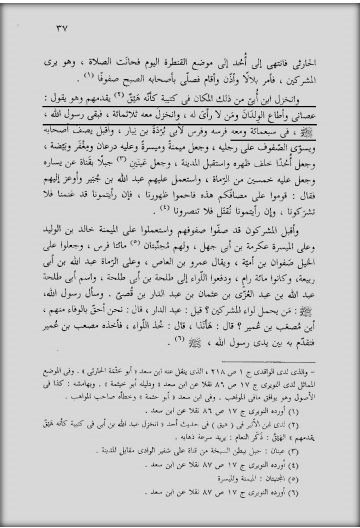 ٣٧
الحارثى فانتهى إلى أُحُد إلى موضع القنطرة اليوم فحانت الصلاة ، وهو يرى
المشركين ، فأمر بلالًا وأذّن وأقام فصلّى بأصحابه الصبح صفوفًا (١) .
وانخزل ابن أُبىّ من ذلك المكان فى كتيبة كأنّه هَيْقٌ (٢) يقدمهم وهو يقول :
عصانى وأطاع الولدَانَ ومَن لا رأىَ له ، وانخزل معه ثلاثمائة ، فبقى رسول الله ،
ﷺ ، فى سبعمائة ومعه فرسه وفرس لأبى بُرْدَة بن نِيَار ، وأقبل يصفّ أصحابه
ويسوّى الصّفوف على رجليه ، وجعل ميمنةً وميسرةً وعليه درعان ومِغْفَر وبَيْضة ،
وجعل أُحُدًا خلف ظهره واستقبل المدينة ، وجعل عَينَين (٣) جبلًا بقَناة عن يساره
وجعل عليه خمسين من الرّماة ، واستعمل عليهم عبد الله بن جُبير وأوعز إليهم
فقال : قوموا على مصافّكم هذه فاحموا ظهورنا ، فإن رأيتمونا قد غنمنا فلا
تشركونا ، وإن رأيتمونا نُقتل فلا تنصرونا (٤) .
وأقبل المشركون قد صفّوا صفوفهم واستعملوا على الميمنة خالد بن الوليد
وعلى الميسرة عكرمة بن أبى جهل ، ولهم مُجَنّبتان (٥) مائتا فرس ، وجعلوا على
الخيل صَفوان بن أميّة ، ويقال عمرو بن العاص ، وعلى الرّماة عبد الله بن أبى
ربيعة ، وكانوا مائة رامٍ ، ودفعوا اللّواء إلى طلحة بن أبى طلحة ، واسم أبى طلحة
عبد الله بن عبد العُزّى بن عثمان بن عبد الدار بن قُصىّ . وسأل رسول الله،
ﷺ : مَن يحمل لواء المشركين ؟ قيل : عبد الدار ، قال : نحن أحقّ بالوفاء منهم ،
أين مُصْعَب بن عُمير ؟ قال : هَأنَذا ، قال : خُذ اللّواء ، فأخذه مصعب بن عُمير
فتقدّم به بين يدى رسول الله ، ﷺ (٦) .
= والذى لدى الواقدى ج ١ ص ٢١٨ ، الذى ينقل عنه ابن سعد « أبو حَثْمَة الحارثى » . وفى الموضع
المماثل لدى النويرى ج ١٧ ص ٨٦ نقلا عن ابن سعد « ودليله أبو خيثمة » . وبهامشه : كذا فى
الأصول وهو يوافق مافى المواهب . وفى ابن سعد « أبو حثمة » وخطأه صاحب المواهب .
(١) أورده النويرى ج ١٧ ص ٨٦ نقلا عن ابن سعد
(٢) لدى ابن الأثير فى ( هيق ) فى حديث أحد « انخزل عبد الله بن أبى فى كتيبة كأنه هَيْق
يقدمهم » الهَيْق : ذَكَر النعام : يريد سرعة ذهابه .
(٣) عينان : جبل ببطن السبخة من قناة على شفير الوادى مقابل المدينة .
(٤) أورده النويرى ج ١٧ ص ٨٧ نقلا عن ابن سعد .
(٥) المجنبتان : الميمنة والميسرة
(٦) أورده النويرى ج ١٧ ص ٨٧ نقلا عن ابن سعد .